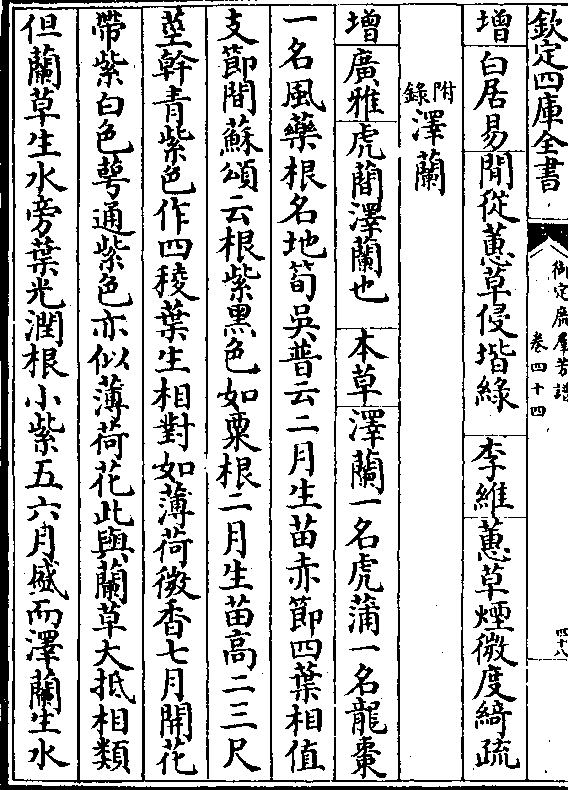 欽定四庫全書
御定廣羣芳譜
卷四十四
四十八
增白居易閒從蕙草侵堦緑 李維蕙草煙微度綺疏
附錄澤蘭
增廣雅虎蘭澤蘭也 本草澤蘭一名虎蒲一名龍棗
一名風藥根名地筍吳普云二月生苗赤節四葉相值
支節間蘇頌云根紫黒色如粟根二月生苗高二三尺
莖幹青紫色作四稜葉生相對如薄荷微香七月開花
帶紫白色萼通紫色亦似薄荷花此與蘭草大抵相類
但蘭草生水旁葉光潤根小紫五六月盛而澤蘭生水